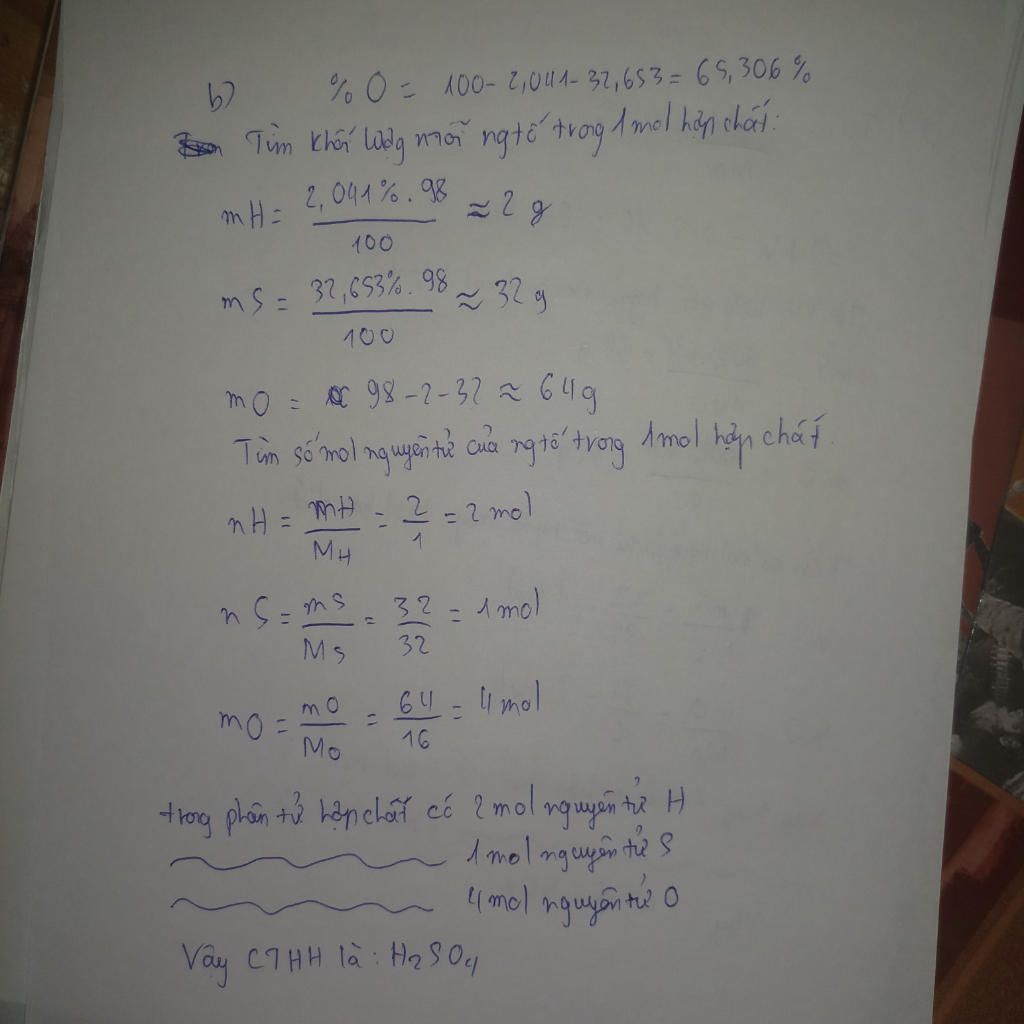 b) % O = 100 - 2,041 - 32,653 = 65,306 %
Tìm khối lượng mỗi ngtố trong 1 mol hợp chất:
mH = 2,041% . 98 / 100 ≈ 2 g
mS = 32,653% . 98 / 100 ≈ 32 g
mO = 98 - 2 - 32 ≈ 64 g
Tìm số mol nguyên tử của ngtố trong 1 mol hợp chất.
nH = mH / MH = 2 / 1 = 2 mol
nS = mS / MS = 32 / 32 = 1 mol
mO = mO / MO = 64 / 16 = 4 mol
trong phân tử hợp chất có 2 mol nguyên tử H
1 mol nguyên tử S
4 mol nguyên tử O
Vậy CTHH là : H2SO4